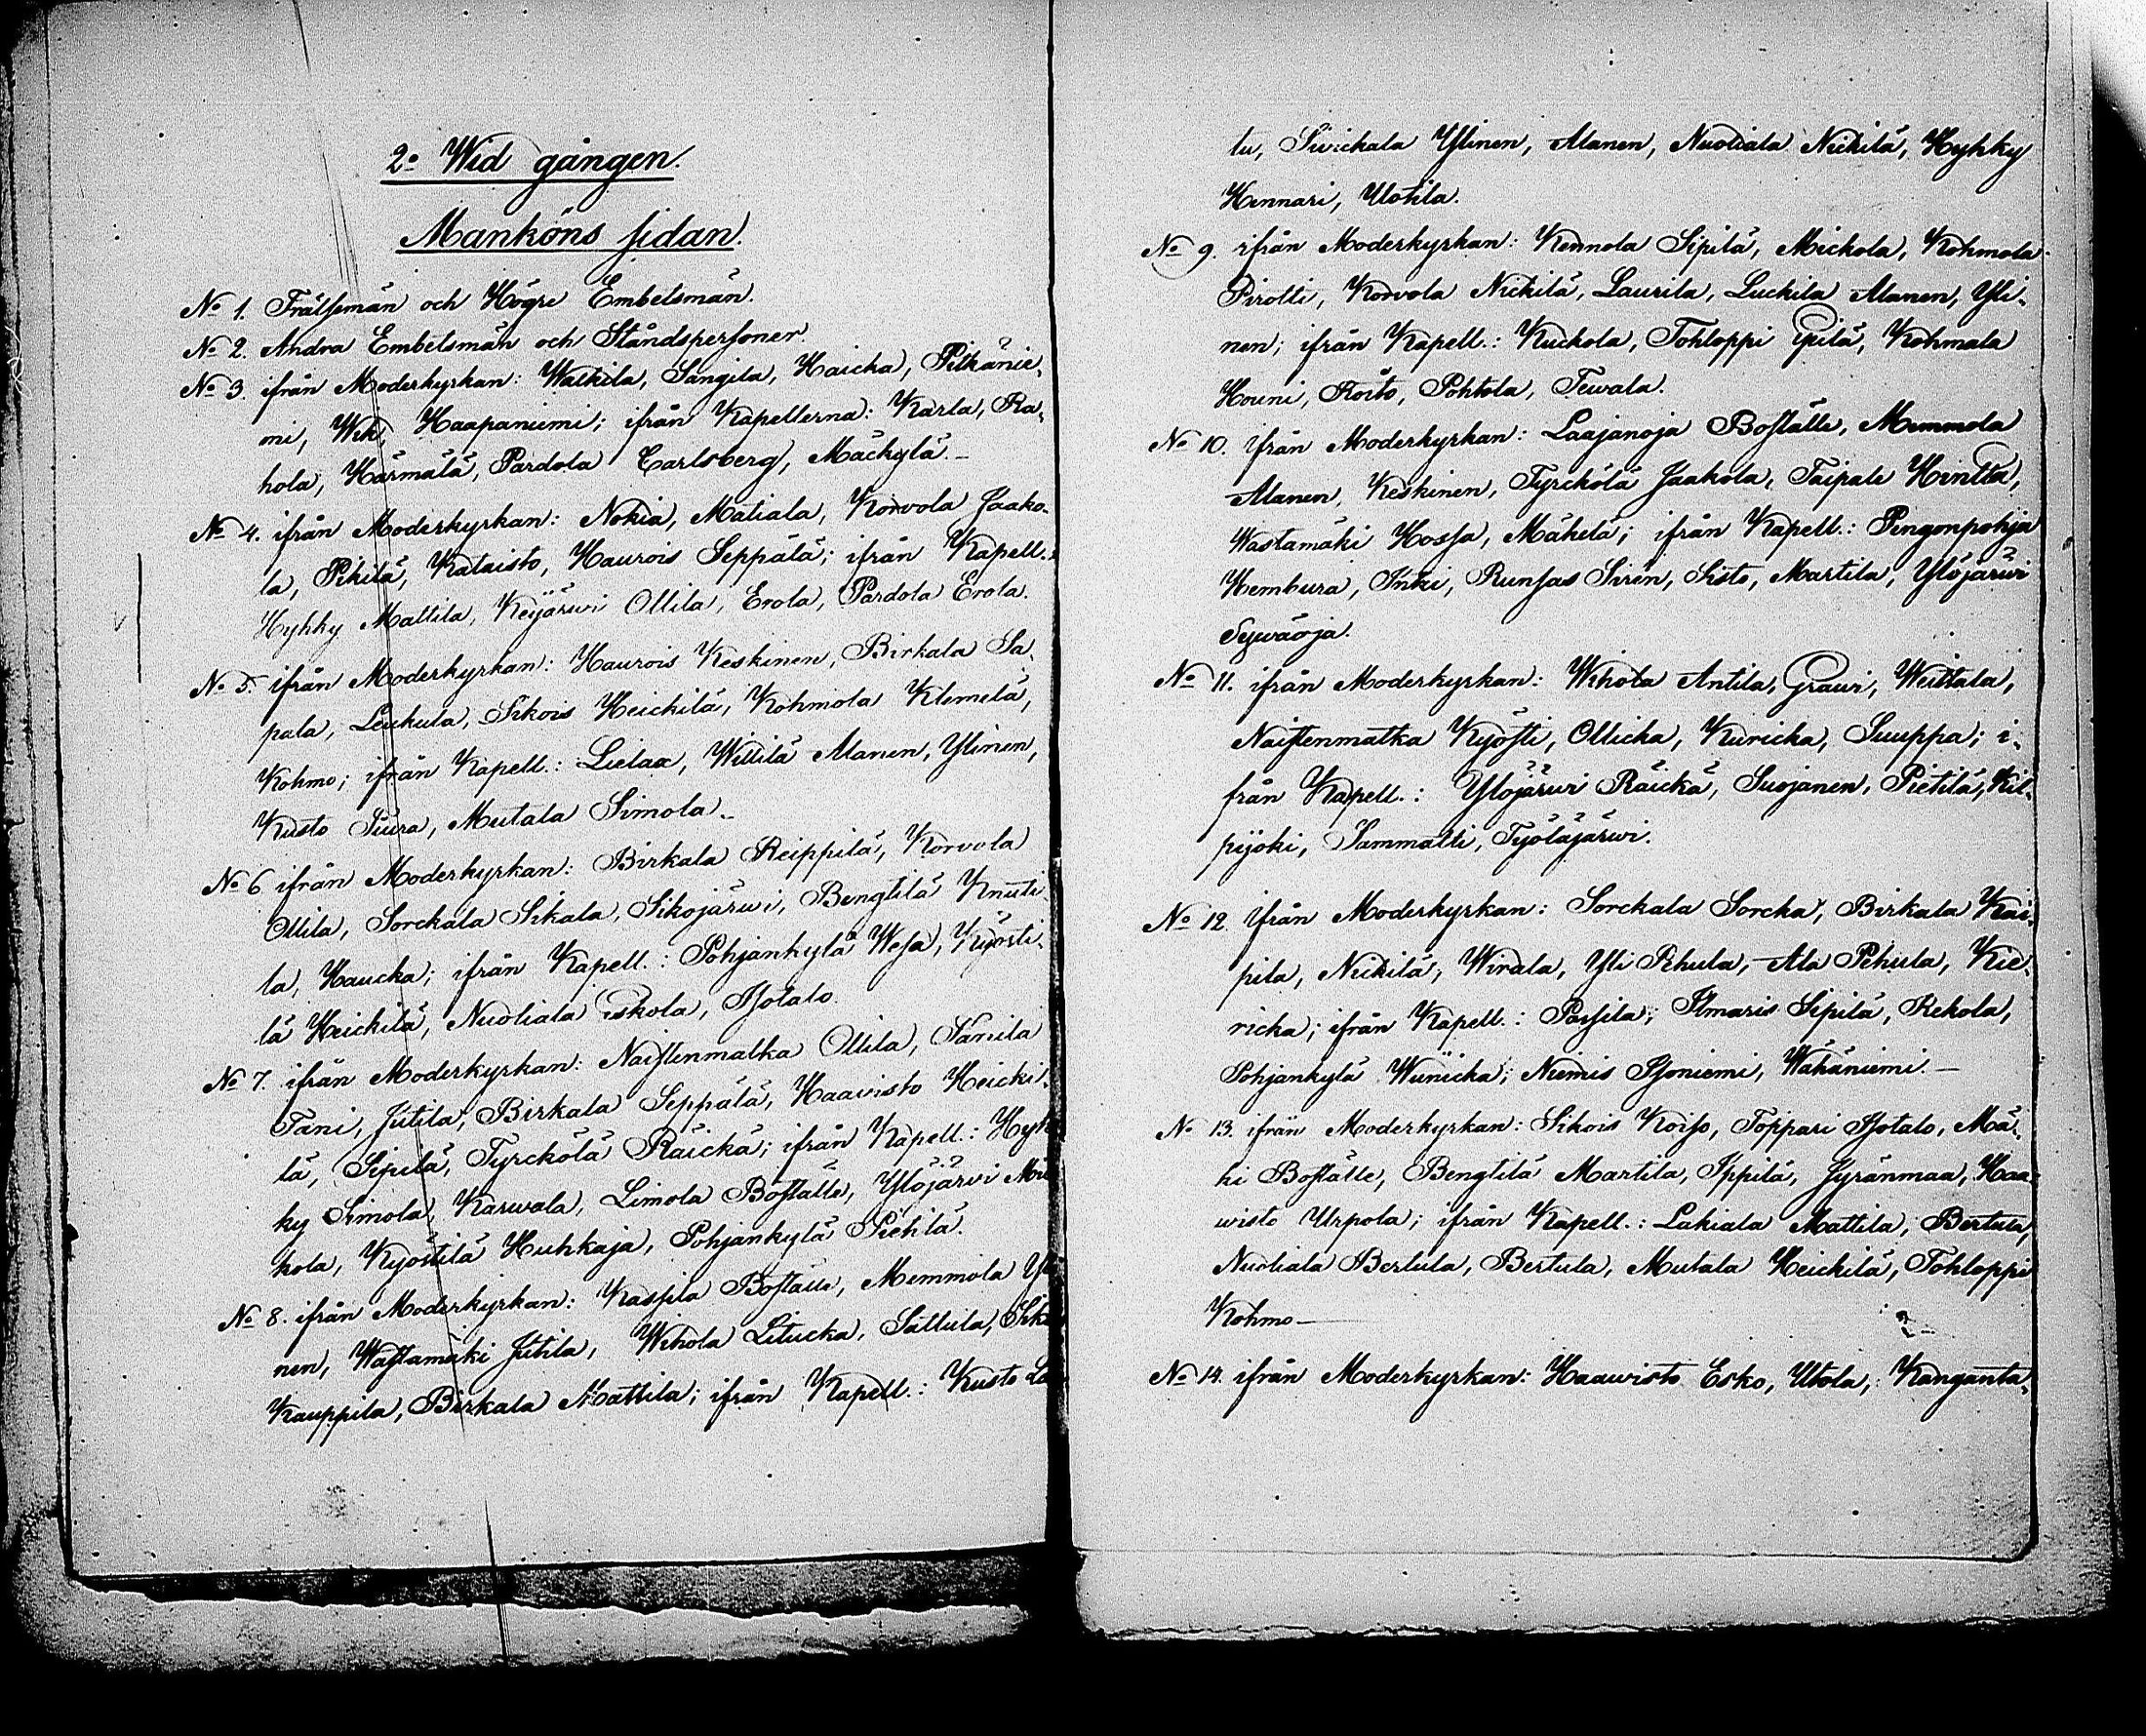 2º Wid gången.
Manköns sidan.
No 1. Frälsemän och Högre Embetsmän.
No 2. Andra Embetsmän och Ståndspersoner.
No 3. ifrån Moderkyrkan: Waikila, Sangila, Haicka, Pitkänie-
mi, Wik, Haapaniemi; ifrån Kapellerna: Karla, Ra-
hola, Härmälä, Pardola Carlsberg, Mäckylä.–
No 4. ifrån Moderkyrkan: Nokia, Matiala, Korvola Jaako-
la, Pikilä, Kataisto, Haurois Seppälä; ifrån Kapell.:
Hyhky Mattila, Keijärwi Ollila, Erola, Pardola Erola.
No 5. ifrån Moderkyrkan: Haurois Keskinen, Birkala Sa-
pala, Leukula, Sikois Heickilä, Kohmola Klemelä,
Kohmo; ifrån Kapell.: Lielax, Willilä Alanen, Ylinen,
Kusto Juura, Mutala Simola.–
No 6 ifrån Moderkyrkan: Birkala Reippilä, Korvola
Ollila, Sorckala Sikala, Sikojärwi, Bengtilä Knuti-
la, Haucka; ifrån Kapell.: Pohjankylä Wesa, Kyösti-
lä Heickilä, Nuoliala Eskola, Isotalo.
No 7. ifrån Moderkyrkan: Naistenmatka Ollila, Taniila
Tani, Jutila, Birkala Seppälä, Haavisto Heicki-
lä, Sipilä, Tyrckölä Räickä; ifrån Kapell.: Hyh
ky Simola, Karwala, Limola Boställe, Ylöjärvi Mic
kola, Kyöstilä Huhkaja, Pohjankylä Pietilä.
No 8. ifrån Moderkyrkan: Kassila Boställe, Memmola Yli
nen, Wastamäki Jutila, Wihola Litucka, Sallula, Siko
Kauppila, Birkala Mattila; ifrån Kapell.: Kusto La
tu, Siuickala Ylinen, Alanen, Nuoliala Nickilä, Hyhky
Hennari, Ulotila.
No 9. ifrån Moderkyrkan: Kennola Sipilä, Mickola, Kohmola
Pirotti, Korvola Nickilä, Laurila, Luckila Alanen, Yli-
nen; ifrån Kapell.: Kuckola, Tohloppi Ypilä, Kohmala
Houni, Roito, Pohtola, Tewala.
No 10. Ifrån Moderkyrkan: Laajanoja Boställe, Memmola
Alanen, Keskinen, Tyrckölä Jaakola, Taipale Hintta,
Wastamäki Hossa, Mäkelä; ifrån Kapell.: Pingonpohja
Hembura, Inki, Runsas Siren, Sisto, Martila, Ylöjärwi
Sywäoja.
No 11. ifrån Moderkyrkan: Wihola Antila, Grawi, Weittala,
Naistenmatka Kyösti, Ollicka, Kuricka, Suuppa; i-
från Kapell.: Ylöjärwi Räickä, Suojanen, Pietilä, Kil-
pijoki, Sammatti, Työläjärwi.
No 12. Ifrån Moderkyrkan: Sorckala Sorcka, Birkala Kai-
pila, Nickilä, Wirala, Yli Pehula, Ala Pehula, Kie-
ricka; ifrån Kapell.: Porsila, Ilmaris Sipilä, Rekola,
Pohjankylä Wünicka, Niemis Isoniemi, Wähäniemi.–
No 13. ifrån Moderkyrkan: Sikois Koiso, Toppari Isotalo, Mä-
ki Boställe, Bengtilä Martila, Ippilä, Jyränmaa, Haa-
wisto Urpola; ifrån Kapell.: Lakiala Mattila, Bertula,
Nuoliala Bertula, Bertula, Mutala Heickilä, Tohloppi
Kohmo–
No 14. ifrån Moderkyrkan: Haawisto Esko, Utola, Kanganta-